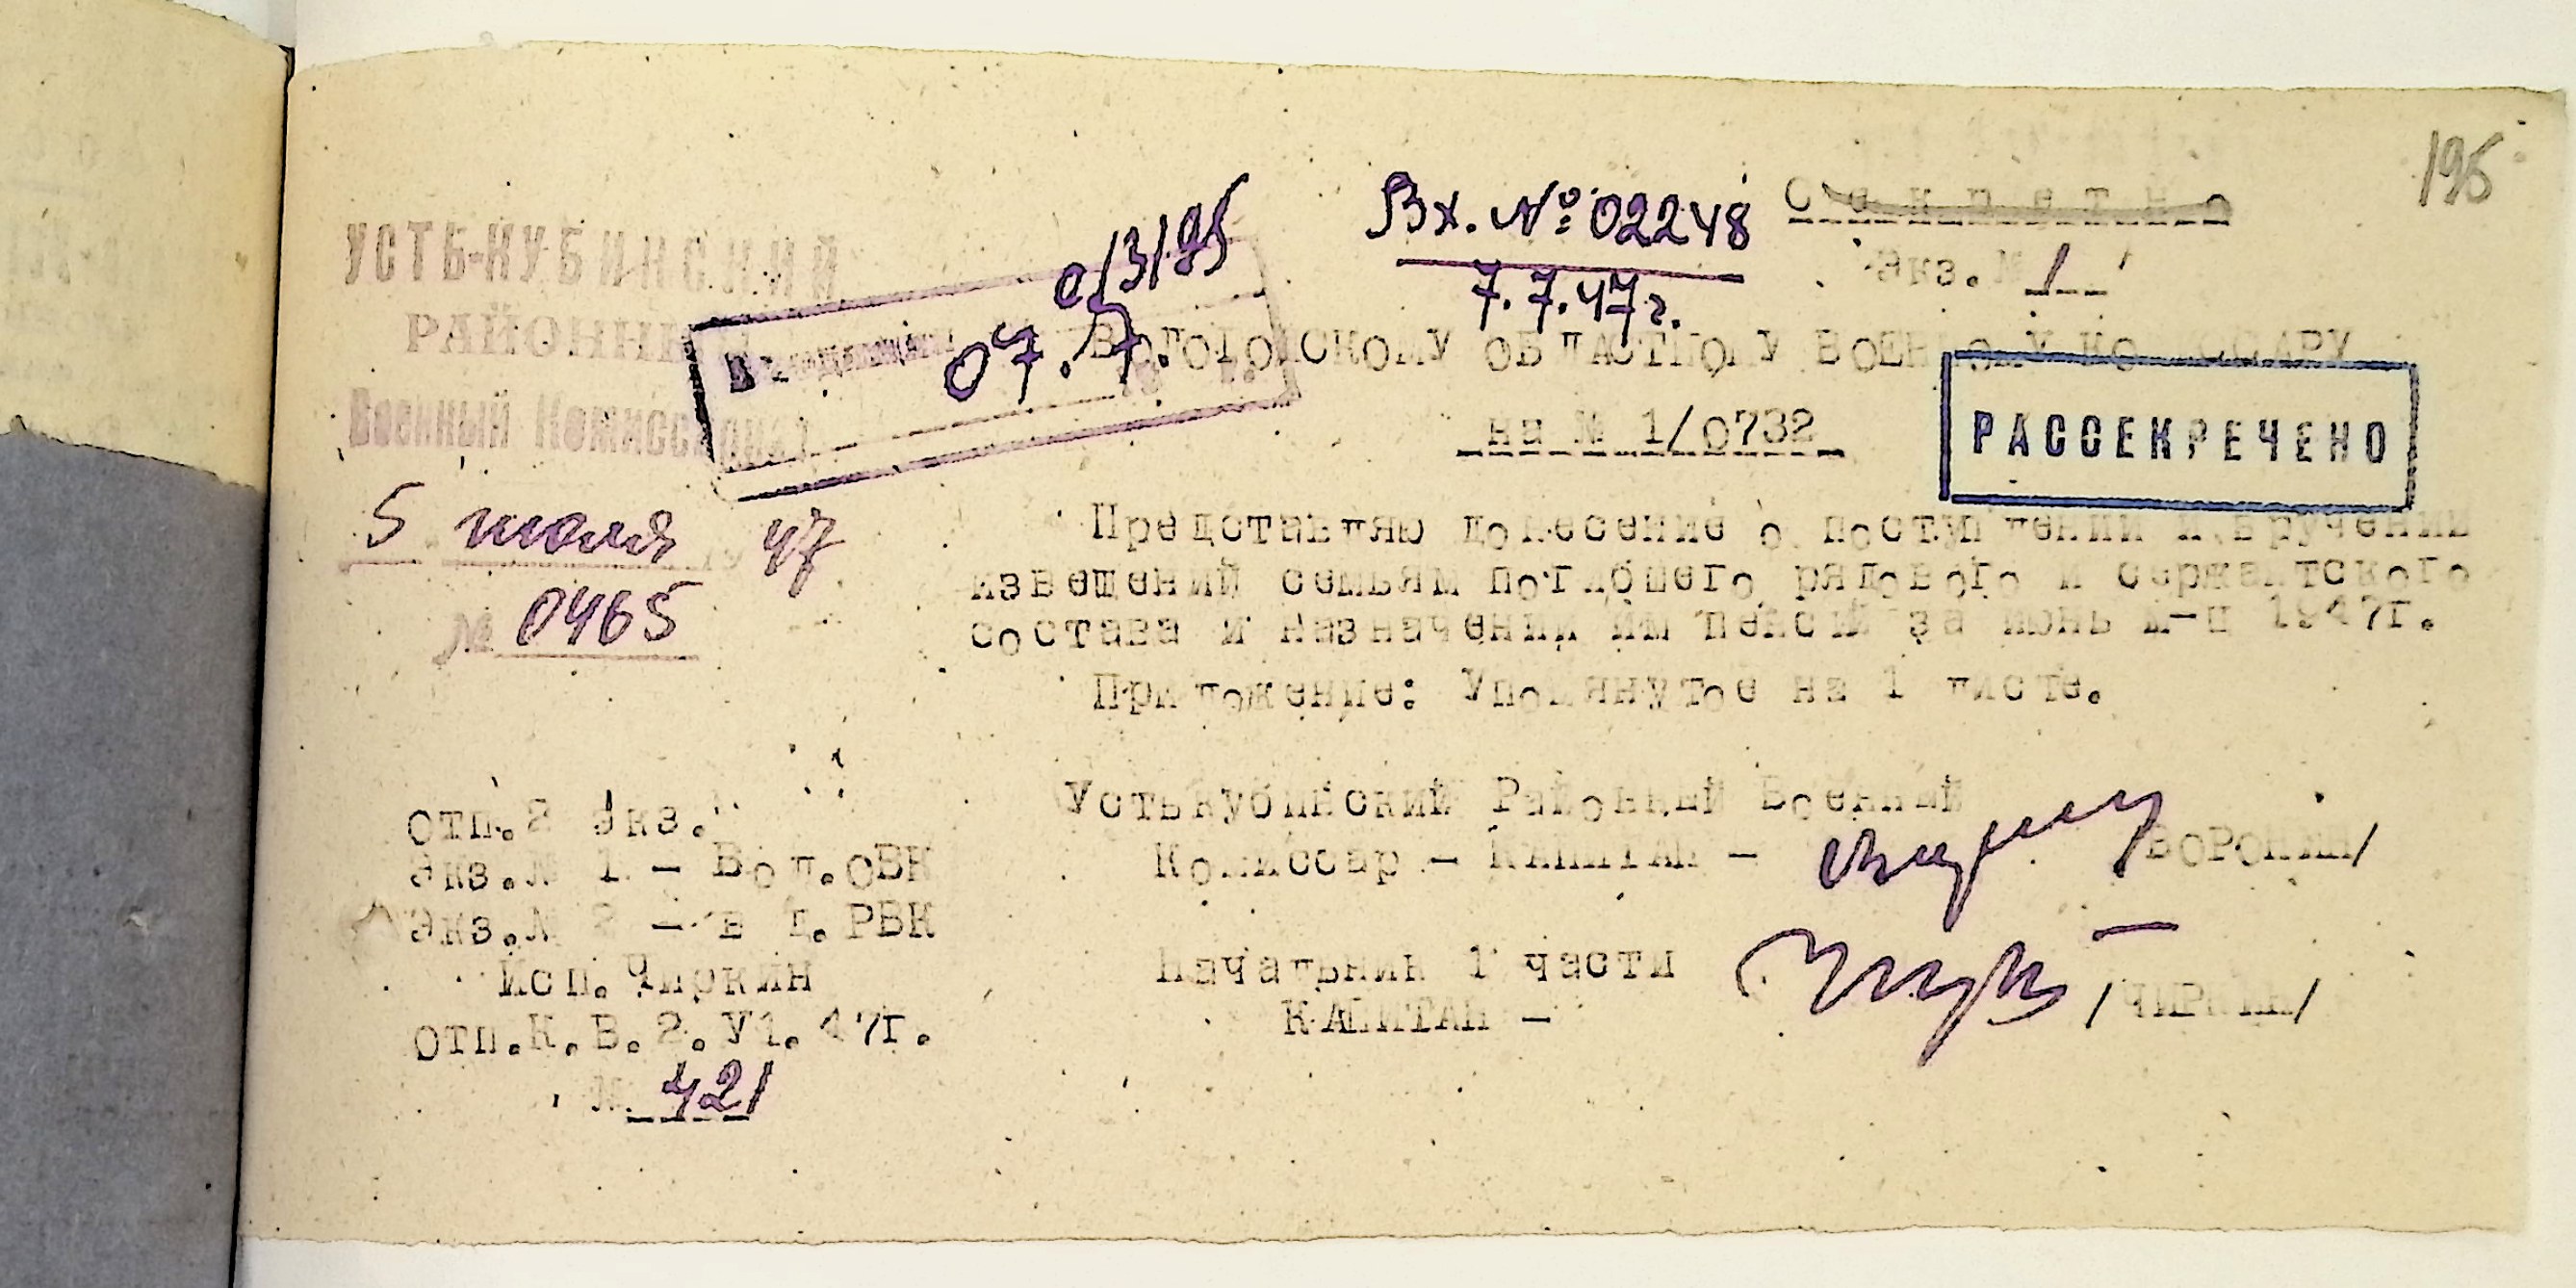 195
Секретно
Экз.№ 1
Вх. № 02248
7.7.47г.
УСТЬ-КУБИНСКИЙ
РАЙОННЫЙ
Военный Комиссариат
5 июля 19 47
№ 0465
07.7.
ВОЛОГОДСКОМУ ОБЛАСТНОМУ ВОЕННОМУ КОМИССАРУ
на № 1/0732
РАССЕКРЕЧЕНО
Представляю донесение о поступлении и вручении
извещений семьям погибшего рядового и сержантского
состава и назначении им пенсий за июнь м-ц 1947г.
Приложение: Упомянутое на 1 листе.
Устькубинский Районный Военный
Комиссар - КАПИТАН - /ВОРОНИН/
Начальник 1 части
КАПИТАН - /ЧИРКИН/
отп.2 экз.
Экз.№ 1 - Вол.ОВК
Экз.№ 2 - в д.РВК
Исп.Чиркин
отп.К.В.2.У1.47г.
№ 421